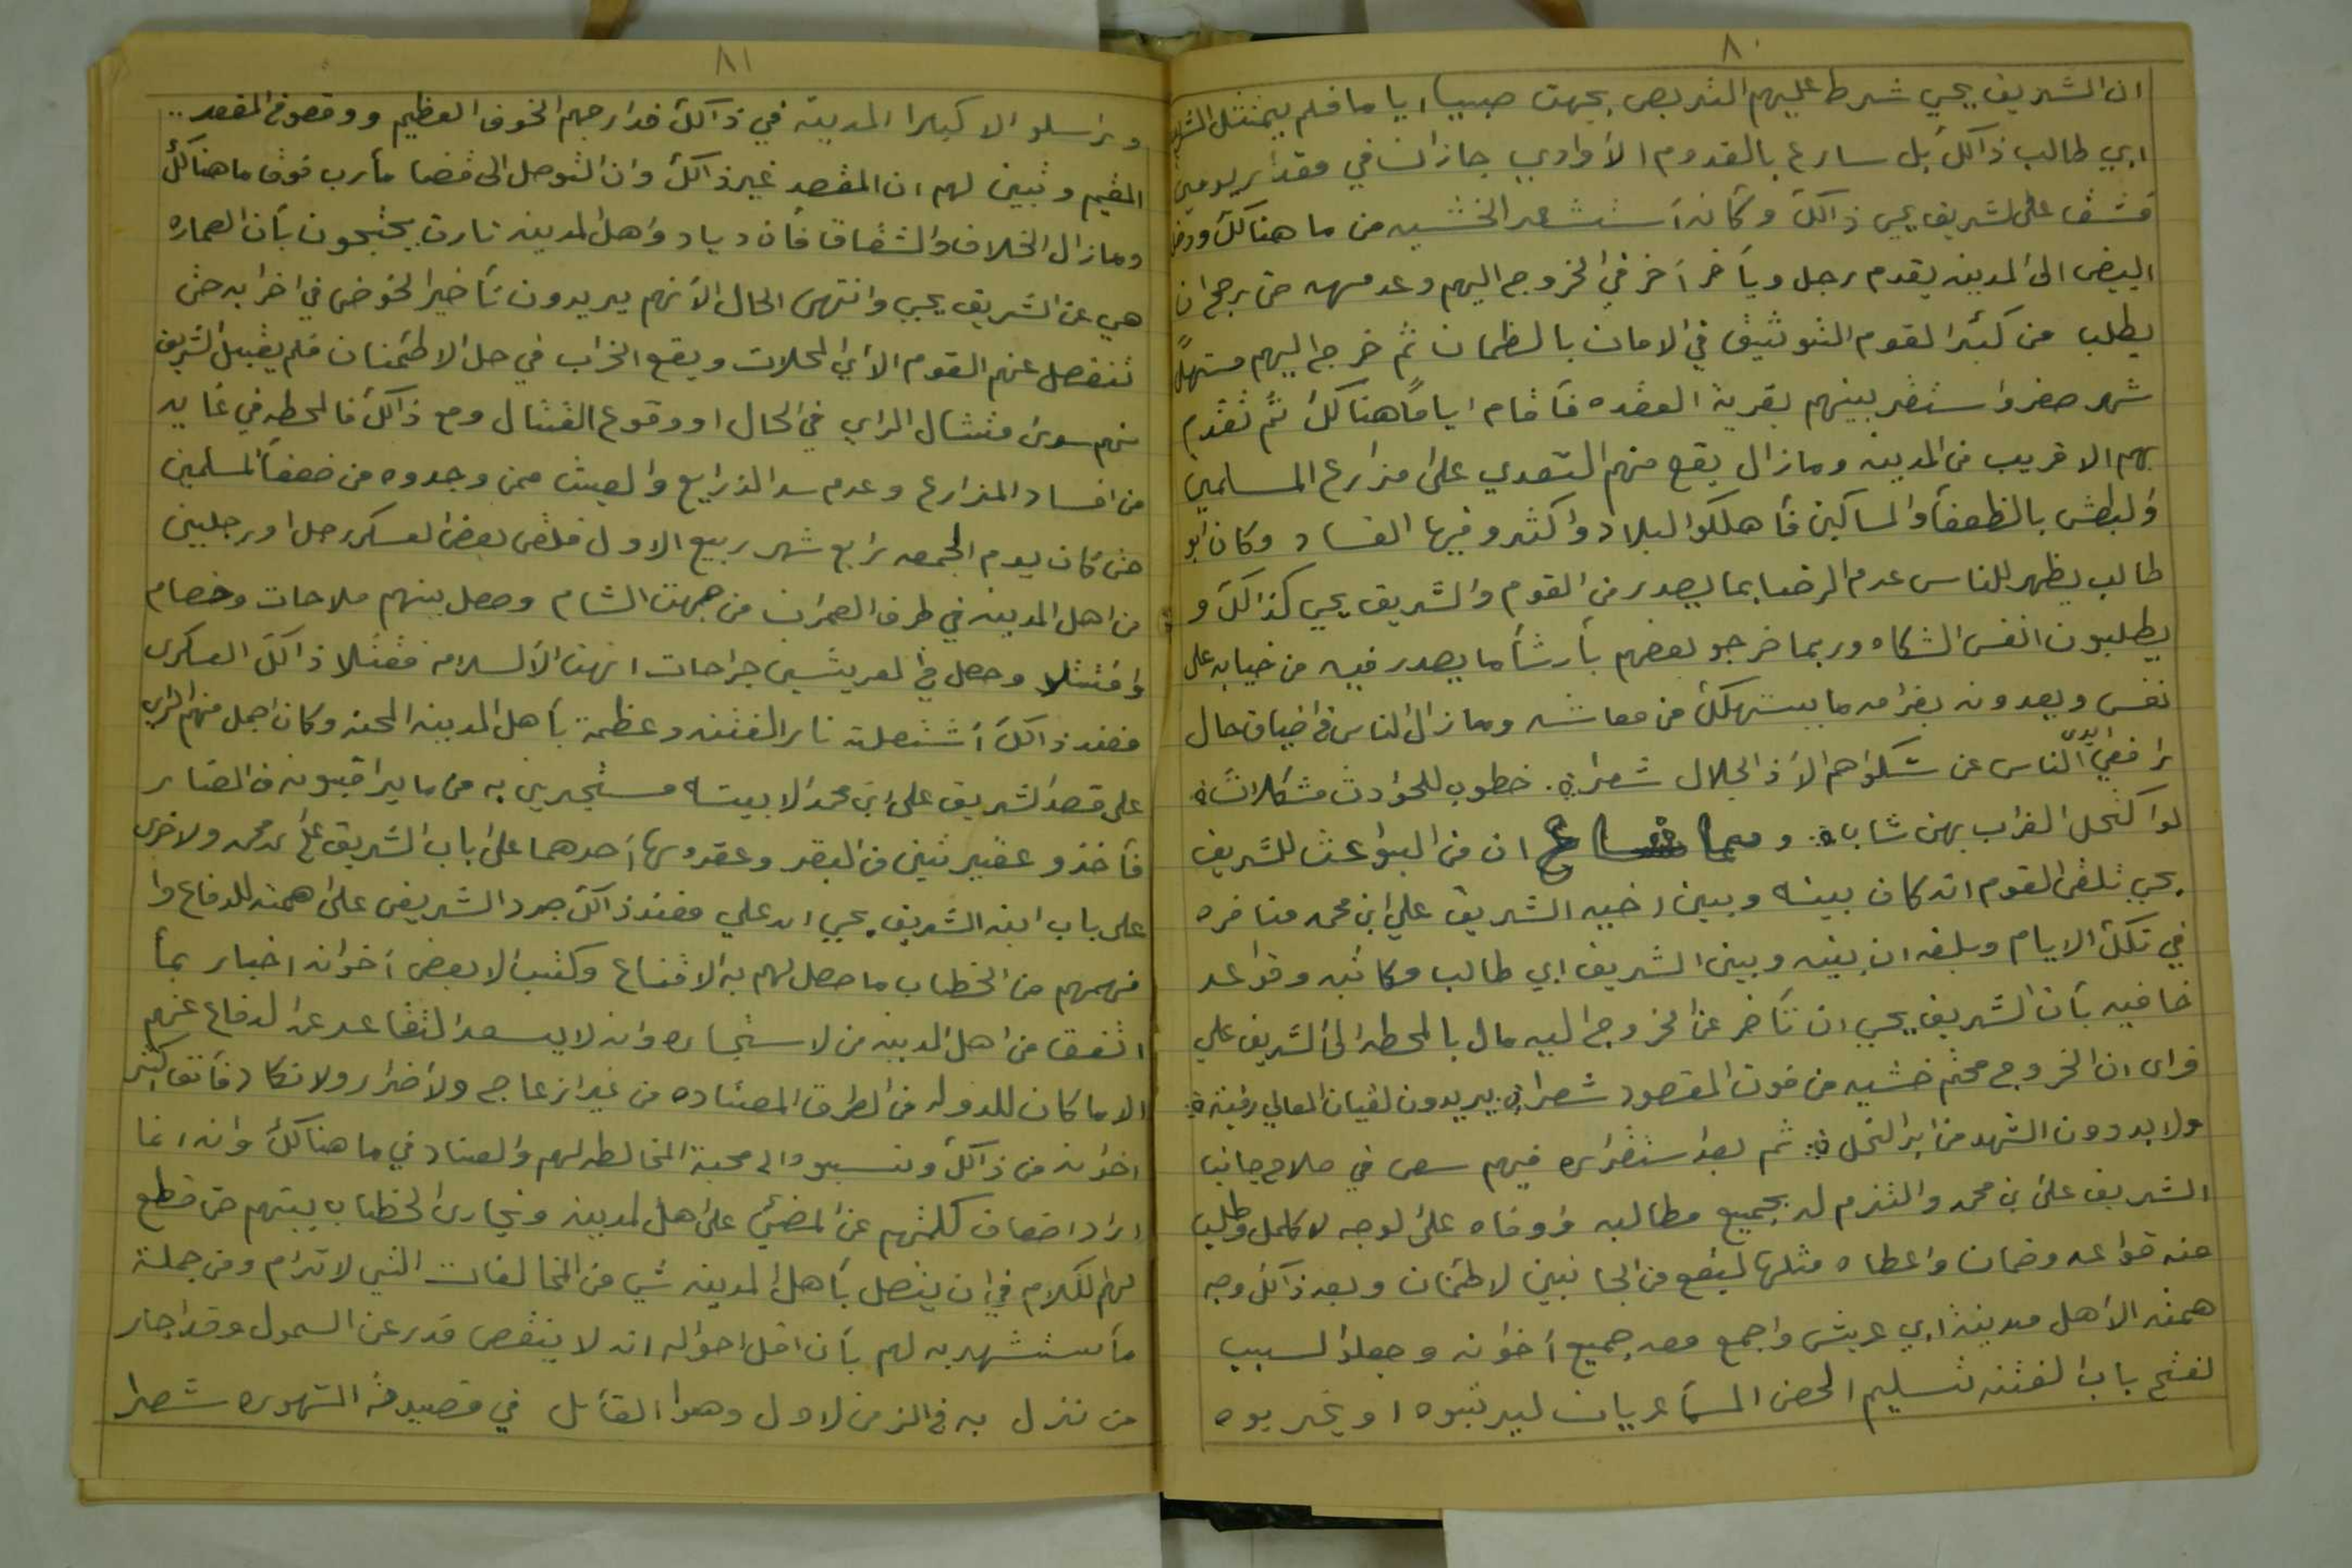 ٨٠
ان الشريف يحيي شرط عليهم التربص بجهت صبيا اياما فلم يتمتثل الشريف
ابي طالب ذالك بل سارع بالقدوم الا وادي جازان في مقدار يومين
فشق على لشريف يحيي ذالك وكأنه أستشعر الخشيه من ما هنالك ورجع
البيض الى المدينه يقدم رجل ويأخر أخر في الخروج اليهم وعدمهه حتى ترجح ان
يطلب من كبرا لقوم التوثيق في الامان بالظمان ثم خرج اليهم مستهل
شهر صفر واستقر بينهم بقرية العقده فأقام اياماً هنالك ثم تقدم
بهم الا قريب من المدينه ومازال يقع منهم التعدي على مزارع المسلمين
والبطش بالظعفأ والمساكين فأهلكوا لبلاد واكثرو فيها الفساد وكان ابو
طالب يظهر للناس عدم الرضا بما يصدر من القوم والشريف يحيي كذالك و
يطلبون انفس الشكاه وربما خرجو بعضهم بأرشأ ما يصدر فيه من خيابه على
نفس ويعدونه بغرامه ما يستهلك من معاشه ومازال الناس في اضياق حال
رافعي ايدي الناس عن شكواهم الا ذ الجلال شعراً. خطوب للحوادث مشكلاتٌ
لو اكتحل الغراب بهن شابا. ومما شاع ان من البواعث للشريف
يحيي تلقى القوم انه كان بينه وبين اخيه الشريف علي ابن محمد منافره
في تلك الايام وبلغه ان بينه وبين الشريف ابي طالب مكاتبه وقواعد
خافيه بأن الشريف يحيي ان تأخر عن الخروج اليه مال بالمحطه الى الشريف علي
فراى ان الخروج محتم خشيه من فوت المقصود شعراً. يريدون لقيان المعالي رخيتة
ولا بد دون الشهد من ابر النحل. ثم بعد استقراره فيهم سعى في صلاح جانب
الشريف على بن محمد والتزم له بجميع مطالبه فروفاه على لوجه لاكمل وطلب
منه قواعد وضمان واعطاه مثلها ليقع من الجانبين لاطمئنان وبعد ذالك وجه
همته الا اهل مدينة ابي عريش واجمع معه جميع أخوانه وجعلو السبب
لفتح باب الفتنه تسليم الحصن المسأ عريان ليرتبوه او يخربوه
٨١
وراسلو الا كبرا المدينة في ذالك فدارجهم الخوف العظيم ووقعو في المقعد..
المقيم وتبين لهم ان المقصد غير ذالك وان التوصل الى قضا مأرب فوق ما هنالك
ومازال الخلاف والشقاق فأن دياد واهل المدينه تارت يحتجون بأن العماره
هي عن الشريف يحيي وانتهى الحال الا نهم يريدون تأخير الخوض في اخرابه حتى
تنفصل عنهم القوم الا اي المحلات ويقع الخراب في حل الاطئمنان فلم يقبل الشريف
منهم سوى متثال الراي في الحال او وقوع القتال ومع ذالك فالمحطه في غايه
من افساد المزارع وعدم سد الذرايع والعيث ممن وجدوه من ضعفأ المسلمين
حتى كان يوم الجمعه رابع شهر ربيع الاول فلقى بعض العسكر رجل او رجلين
من اهل المدينه في طرف العمران من جهت الشام وحصل بينهم ملاحات وخصام
واقتتلا وحصل في لعريشين جراحات انهت الا لسلامه فقتلا ذالك العسكرى
فعند ذالك أشتعلت نار الفتنه وعظمة بأهل المدينه المحنه وكان اجمل منهم الراي
على قصد الشريف على ابن محمد الا بيته مستجيرين به من ما يراقبونه من الضار
فأخذو عقيرتين من البقر وعقروها أحدهما على باب الشريف علي بن محمد ولاخرى
على باب ابنه الشريف يحيي ابن علي فعند ذالك جرد الشريف على همته للدفاع وا
فهمهم من الخطاب ما حصل لهم به الاقناع وكتب الا بعض أخوانه اخبار بمأ
اتفق من اهل المدينه من لاستجاره وانه لا يسعد التقاعد عن الدفاع عنهم
الا ما كان للدوله من الطرق المعتاده من غير ازعاج ولا ضرار ولا نكاد فأنف اكثر
اخوانه من ذالك ونسبوه الى محبة المخالطه لهم والعناد في ما هنالك وانه انما
اراد اضعاف كلمتهم عن المضي على اهل المدينه وتجارى الخطاب بينهم حتى قطع
لهم الكلام في ان يتصل بأهل المدينه شي من المخالفات التي لا ترام ومن جملة
مأستشهد به لهم بأن اقل احواله انه لا ينقص قدر عن السمول وقد اجار
من نزل به في الزمن لاول وهوا القأئل في قصيدته المشهوره شعرا